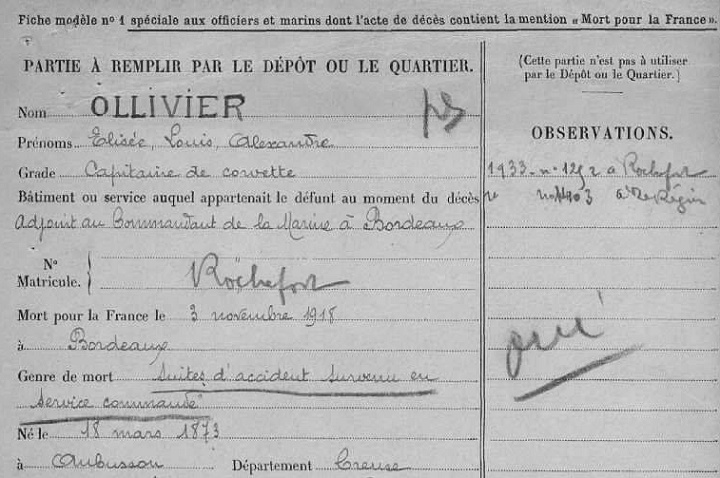 Fiche modèle n° 1 spéciale aux officiers et marins dont l'acte de décès contient la mention « Mort pour la France ».
PARTIE À REMPLIR PAR LE DÉPÔT OU LE QUARTIER.
Nom OLLIVIER
Prénoms Elisée, Louis, Alexandre
Grade Capitaine de corvette
Bâtiment ou service auquel appartenait le défunt au moment du décès
Adjoint au Commandant de la Marine à Bordeaux
N° Matricule. Rochefort
Mort pour la France le 3 novembre 1918
à Bordeaux
Genre de mort Suites d'accident survenu en
service commandé
Né le 18 mars 1873
à Aubusson Département Creuse
(Cette partie n'est pas à utiliser
par le Dépôt ou le Quartier.)
OBSERVATIONS.
1933 n° à Rochefort